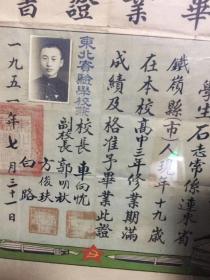 畢業證書
學生石志常係遼東省
鐵嶺縣市人現年十九歲
在本校高中三年修業期滿
成績及格准予畢業此證
東北實驗學校
校長車向忱
副校長郭明秋
方俊
白路
一九五一年七月三十一日